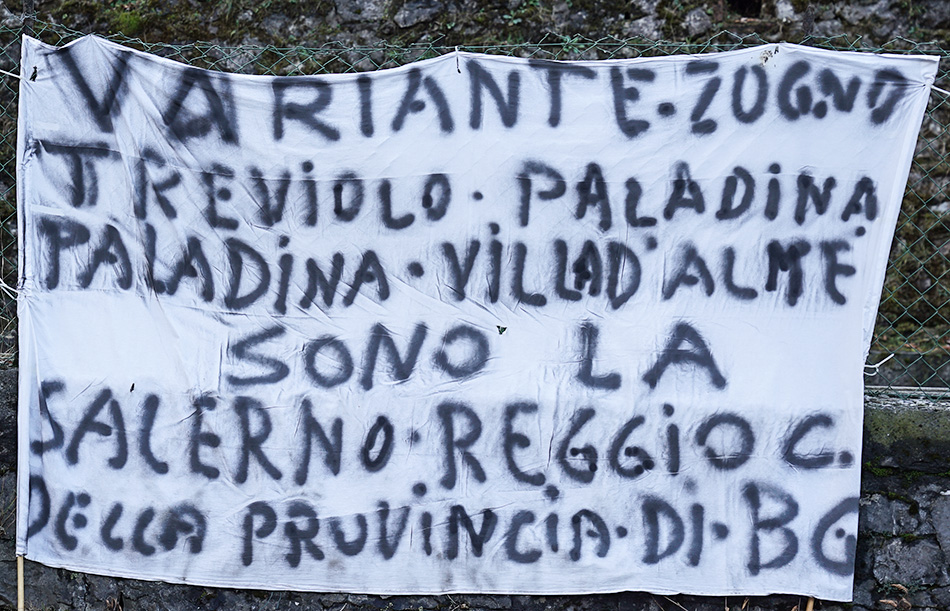 VARIANTE · ZOGNO
TREViOLO · PALADiNA
PALADiNA · ViLLAD'ALME'
SONO LA
SALERNO · REGGiO C.
DELLA PRUViNCiA · Di · BG